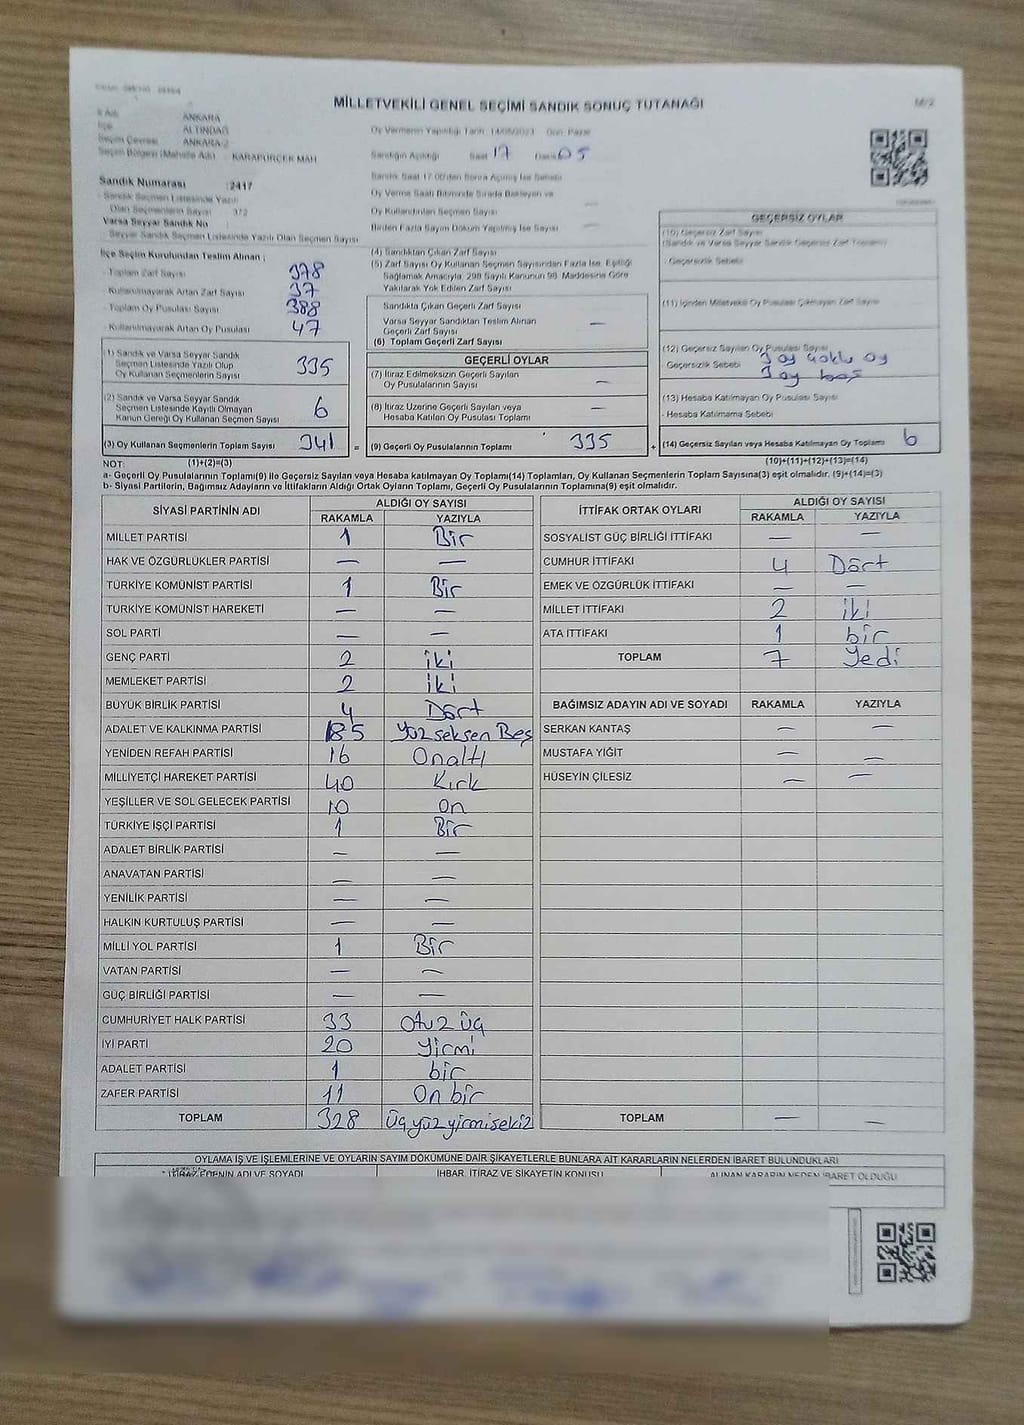 MİLLETVEKİLİ GENEL SEÇİMİ SANDIK SONUÇ TUTANAĞI
M/2
İl Adı : ANKARA
İlçe : ALTINDAĞ
Seçim Çevresi : ANKARA-2
Seçim Bölgesi (Mahalle Adı) : KARAPÜRÇEK MAH
Sandık Numarası : 2417
- Sandık Seçmen Listesinde Yazılı
Olan Seçmenlerin Sayısı : 372
Varsa Seyyar Sandık No :
- Seyyar Sandık Seçmen Listesinde Yazılı Olan Seçmen Sayısı
İlçe Seçim Kurulundan Teslim Alınan ;
- Toplam Zarf Sayısı 378
- Kullanılmayarak Artan Zarf Sayısı 37
- Toplam Oy Pusulası Sayısı 388
- Kullanılmayarak Artan Oy Pusulası 47
(1) Sandık ve Varsa Seyyar Sandık
Seçmen Listesinde Yazılı Olup
Oy Kullanan Seçmenlerin Sayısı 335
(2) Sandık ve Varsa Seyyar Sandık
Seçmen Listesinde Kayıtlı Olmayan
Kanun Gereği Oy Kullanan Seçmen Sayısı 6
(3) Oy Kullanan Seçmenlerin Toplam Sayısı 341 =
Oy Vermenin Yapıldığı Tarih: 14/05/2023 Gün: Pazar
Sandığın Açıldığı Saat 17 Dakika 05
Sandık Saat 17.00'den Sonra Açılmış İse Sebebi
Oy Verme Saati Bitiminde Sırada Bekleyen ve
Oy Kullandırılan Seçmen Sayısı —
Birden Fazla Sayım Döküm Yapılmış İse Sayısı —
(4) Sandıktan Çıkan Zarf Sayısı
(5) Zarf Sayısı Oy Kullanan Seçmen Sayısından Fazla İse, Eşitliği
Sağlamak Amacıyla, 298 Sayılı Kanunun 98. Maddesine Göre
Yakılarak Yok Edilen Zarf Sayısı
Sandıkta Çıkan Geçerli Zarf Sayısı
Varsa Seyyar Sandıktan Teslim Alınan
Geçerli Zarf Sayısı —
(6) Toplam Geçerli Zarf Sayısı
GEÇERLİ OYLAR
(7) İtiraz Edilmeksizin Geçerli Sayılan
Oy Pusulalarının Sayısı —
(8) İtiraz Üzerine Geçerli Sayılan veya
Hesaba Katılan Oy Pusulası Toplamı —
(9) Geçerli Oy Pusulalarının Toplamı 335 +
GEÇERSİZ OYLAR
(10) Geçersiz Zarf Sayısı
(Sandık ve Varsa Seyyar Sandık Geçersiz Zarf Toplamı)
- Geçersizlik Sebebi
(11) İçinden Milletvekili Oy Pusulası Çıkmayan Zarf Sayısı
(12) Geçersiz Sayılan Oy Pusulası Sayısı
Geçersizlik Sebebi 3 oy çoklu oy
3 oy boş
(13) Hesaba Katılmayan Oy Pusulası Sayısı
- Hesaba Katılmama Sebebi
(14) Geçersiz Sayılan veya Hesaba Katılmayan Oy Toplamı 6
NOT: (1)+(2)=(3)
(10)+(11)+(12)+(13)=(14)
a- Geçerli Oy Pusulalarının Toplamı(9) ile Geçersiz Sayılan veya Hesaba katılmayan Oy Toplamı(14) Toplamları, Oy Kullanan Seçmenlerin Toplam Sayısına(3) eşit olmalıdır. (9)+(14)=(3)
b- Siyasi Partilerin, Bağımsız Adayların ve İttifakların Aldığı Ortak Oyların Toplamı, Geçerli Oy Pusulalarının Toplamına(9) eşit olmalıdır.
SİYASİ PARTİNİN ADI
ALDIĞI OY SAYISI
RAKAMLA YAZIYLA
MİLLET PARTİSİ 1 Bir
HAK VE ÖZGÜRLÜKLER PARTİSİ — —
TÜRKİYE KOMÜNİST PARTİSİ 1 Bir
TÜRKİYE KOMÜNİST HAREKETİ — —
SOL PARTİ — —
GENÇ PARTİ 2 iki
MEMLEKET PARTİSİ 2 iki
BÜYÜK BİRLİK PARTİSİ 4 Dört
ADALET VE KALKINMA PARTİSİ 185 Yüz seksen Beş
YENİDEN REFAH PARTİSİ 16 Onaltı
MİLLİYETÇİ HAREKET PARTİSİ 40 Kırk
YEŞİLLER VE SOL GELECEK PARTİSİ 10 On
TÜRKİYE İŞÇİ PARTİSİ 1 Bir
ADALET BİRLİK PARTİSİ — —
ANAVATAN PARTİSİ — —
YENİLİK PARTİSİ — —
HALKIN KURTULUŞ PARTİSİ — —
MİLLİ YOL PARTİSİ 1 Bir
VATAN PARTİSİ — —
GÜÇ BİRLİĞİ PARTİSİ — —
CUMHURİYET HALK PARTİSİ 33 Otuz üç
İYİ PARTİ 20 Yirmi
ADALET PARTİSİ 1 bir
ZAFER PARTİSİ 11 On bir
TOPLAM 328 üçyüzyirmisekiz
İTTİFAK ORTAK OYLARI
ALDIĞI OY SAYISI
RAKAMLA YAZIYLA
SOSYALİST GÜÇ BİRLİĞİ İTTİFAKI — —
CUMHUR İTTİFAKI 4 Dört
EMEK VE ÖZGÜRLÜK İTTİFAKI — —
MİLLET İTTİFAKI 2 iki
ATA İTTİFAKI 1 bir
TOPLAM 7 Yedi
BAĞIMSIZ ADAYIN ADI VE SOYADI RAKAMLA YAZIYLA
SERKAN KANTAŞ — —
MUSTAFA YİĞİT — —
HÜSEYİN ÇİLESİZ — —
TOPLAM — —
OYLAMA İŞ VE İŞLEMLERİNE VE OYLARIN SAYIM DÖKÜMÜNE DAİR ŞİKAYETLERLE BUNLARA AİT KARARLARIN NELERDEN İBARET BULUNDUKLARI
İTİRAZ EDENİN ADI VE SOYADI İHBAR, İTİRAZ VE ŞİKAYETİN KONUSU ALINAN KARARIN NEDEN İBARET OLDUĞU